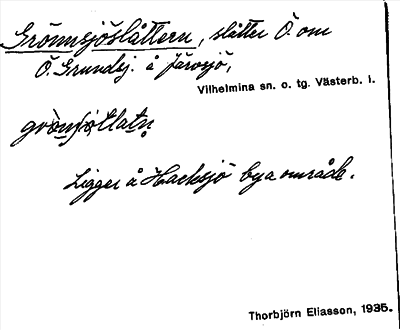 Grönnsjöslåttern, slåtter Ö. om
Ö. Grundsj. å Järvsjö,
Vilhelmina sn. o. tg. Västerb. l.
Ligger å Hacksjö bya område.
Thorbjörn Eliasson, 1935.